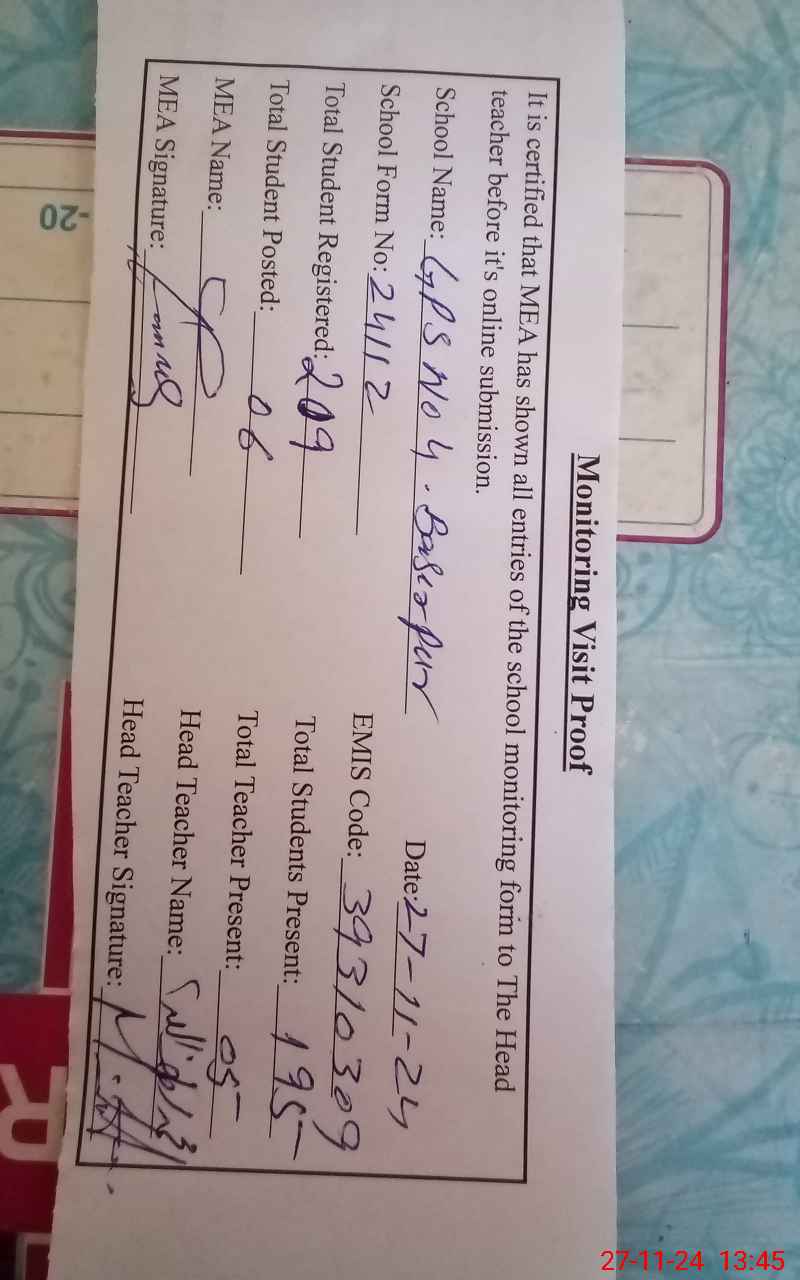 Monitoring Visit Proof
It is certified that MEA has shown all entries of the school monitoring form to The Head
teacher before it's online submission.
School Name: GPS No 4. Basirpur Date: 27-11-24
School Form No: 24112 EMIS Code: 39310309
Total Student Registered: 209 Total Students Present: 195
Total Student Posted: 06 Total Teacher Present: 05
MEA Name: Head Teacher Name:
MEA Signature: Head Teacher Signature:
-20
R
27-11-24 13:45